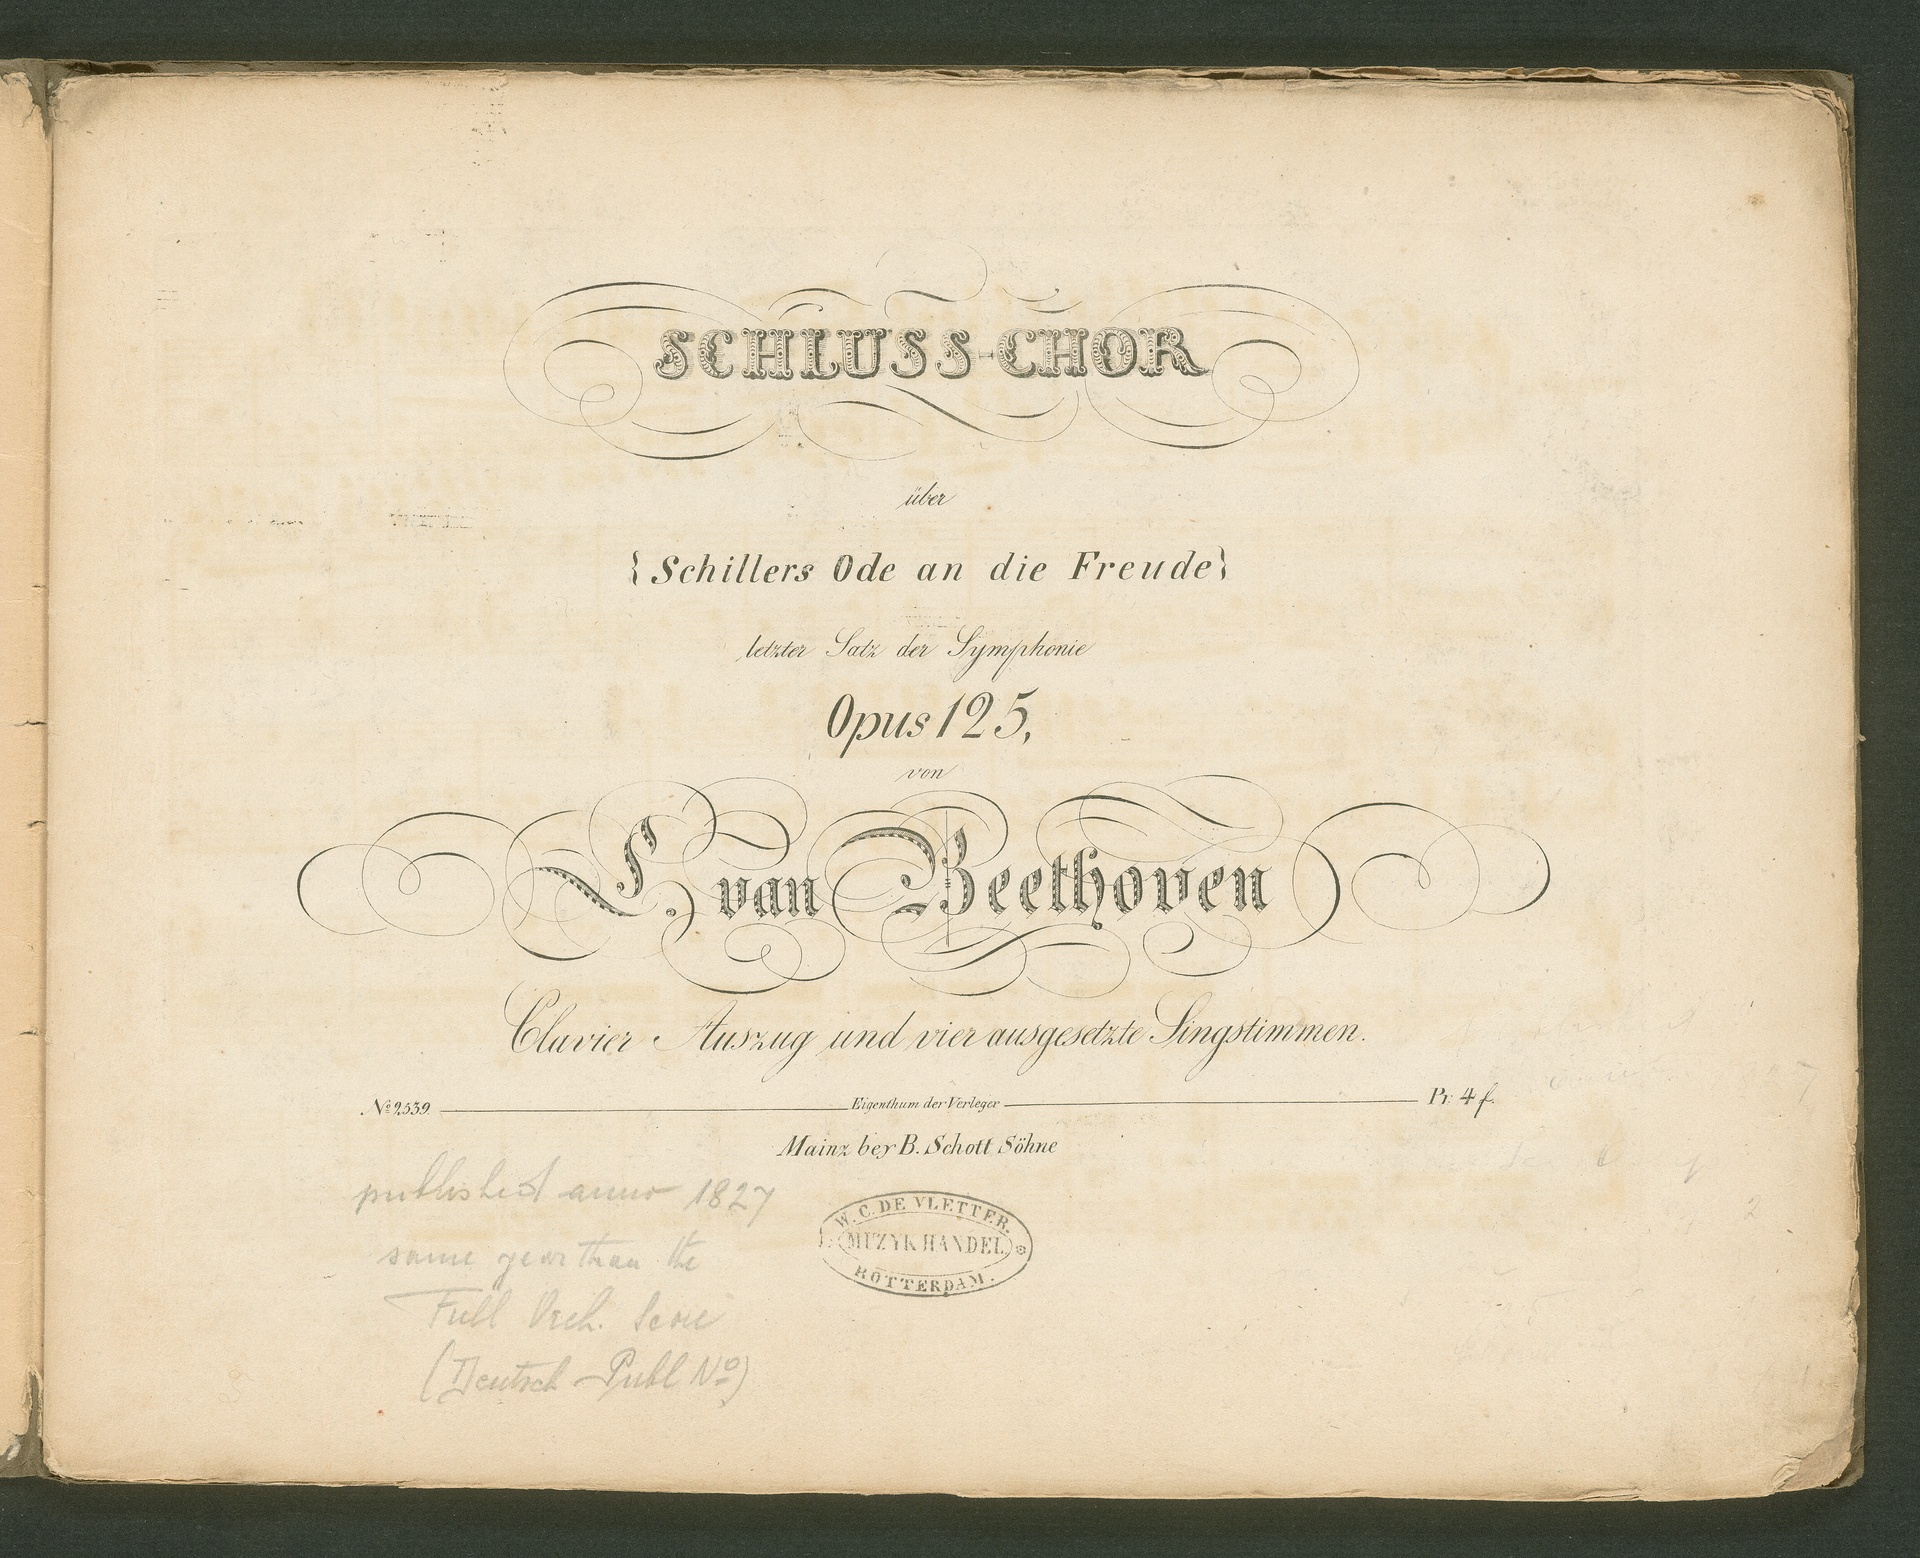 SCHLUSS-CHOR
über
{Schillers Ode an die Freude}
letzter Satz der Symphonie
Opus 125,
von
L. van Beethoven
Clavier Auszug und vier ausgesetzte Singstimmen.
No 2539. Eigenthum der Verleger Pr. 4 f.
Mainz bey B. Schott Söhne
published anno 1827
same year than the
Full Orch. Score
(Deutsch Publ No)
W. C. DE VLETTER.
MUZYKHANDEL
ROTTERDAM.